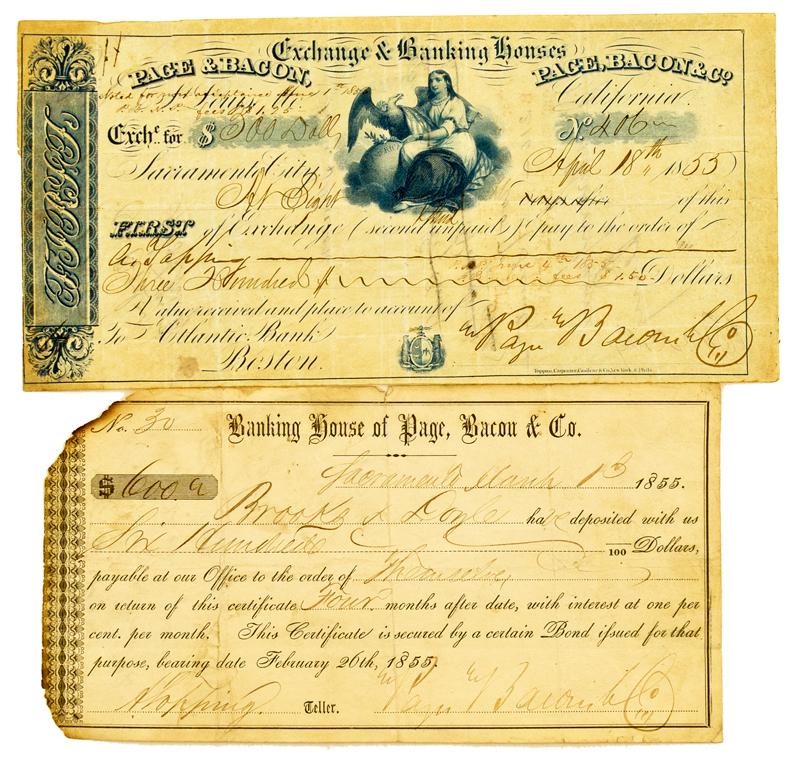 Exchange & Banking Houses
PAGE & BACON,
PAGE, BACON & Co
California.
Exche. for $ 300 Dolls
No 406
Sacramento City, April 18th 1855
At Sight of this
FIRST of Exchange (second unpaid) pay to the order of
Topping
Three Hundred Dollars
Value received and place to account of
To Atlantic Bank
Boston.
Page Bacon & Co
Toppan, Carpenter, Casilear & Co, New York & Phila.
No. 30
Banking House of Page, Bacon & Co.
Sacramento March 1st 1855.
$ 600
Brooks & Doyle have deposited with us
Six Hundred 100 Dollars,
payable at our Office to the order of themselves
on return of this certificate Four months after date, with interest at one per
cent. per month. This Certificate is secured by a certain Bond issued for that
purpose, bearing date February 26th, 1855.
Topping Teller. Page Bacon & Co